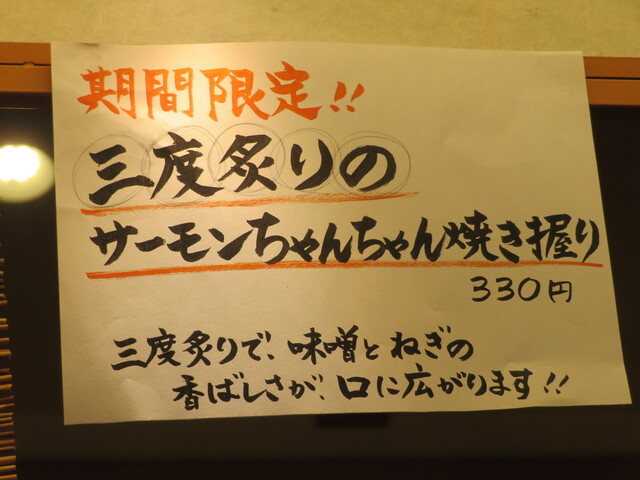 期間限定!!
三度炙りの
サーモンちゃんちゃん焼き握り
330円
三度炙りで、味噌とねぎの
香ばしさが、口に広がります!!